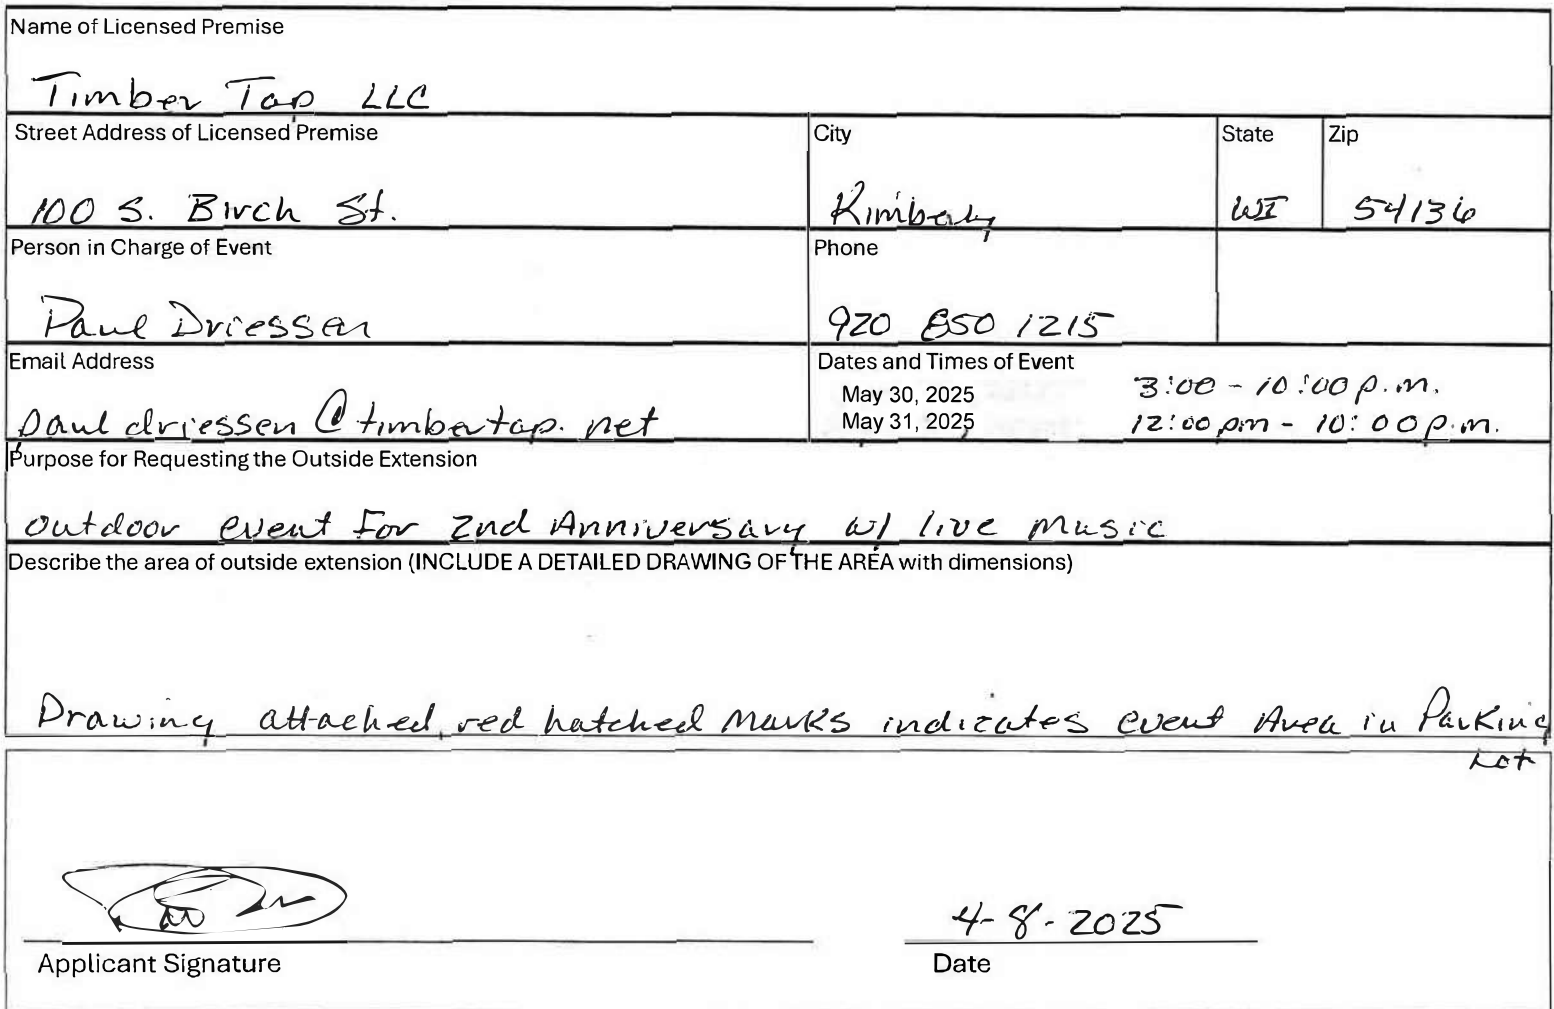 Name of Licensed Premise
Timber Tap LLC
Street Address of Licensed Premise City State Zip
100 S. Birch St. Kimberly WI 54136
Person in Charge of Event Phone
Paul Driessen 920 850 1215
Email Address Dates and Times of Event
May 30, 2025 3:00 - 10:00 p.m.
paul driessen @ timbertap. net May 31, 2025 12:00 pm - 10:00 p.m.
Purpose for Requesting the Outside Extension
outdoor event For 2nd Anniversary w/ live music
Describe the area of outside extension (INCLUDE A DETAILED DRAWING OF THE AREA with dimensions)
Drawing attached, red hatched marks indicates event Area in Parking
Lot
4-8-2025
Applicant Signature Date